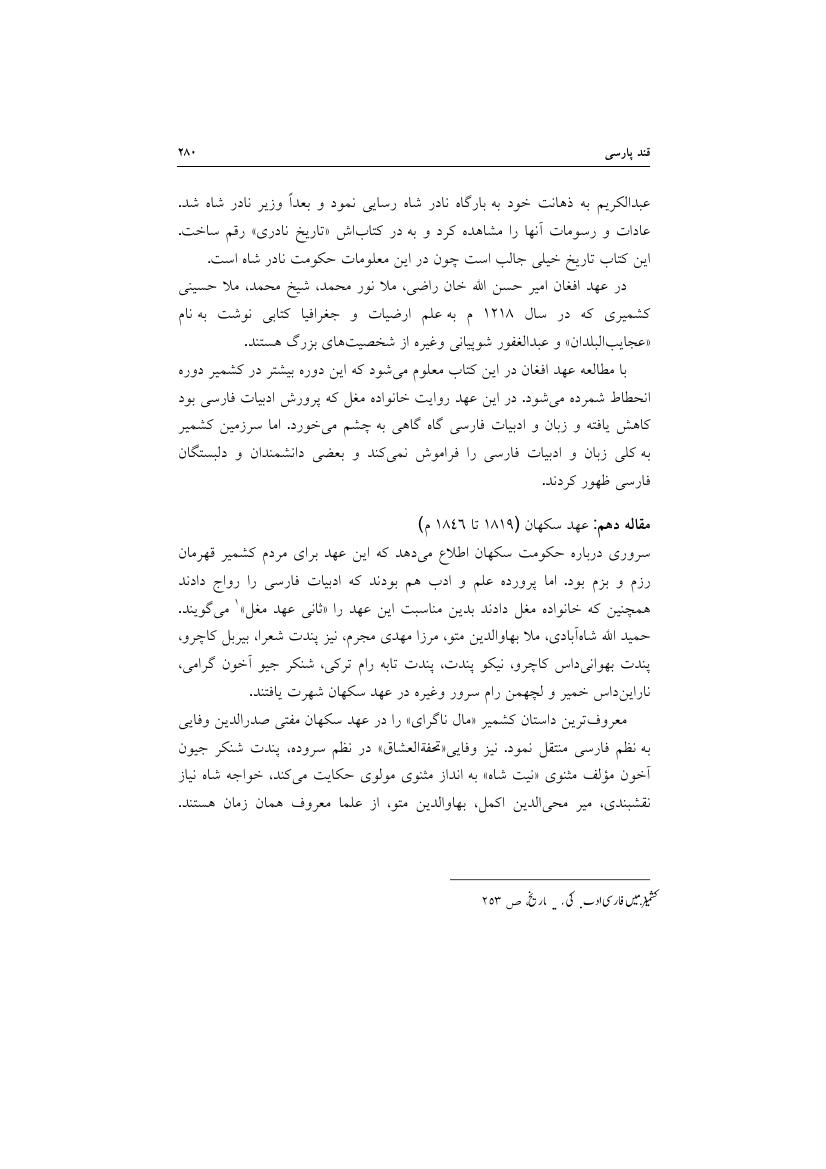 قند پارسی ۲۸۰
عبدالکریم به ذهانت خود به بارگاه نادر شاه رسایی نمود و بعداً وزیر نادر شاه شد.
عادات و رسومات آنها را مشاهده کرد و به در کتاب‌اش «تاریخ نادری» رقم ساخت.
این کتاب تاریخ خیلی جالب است چون در این معلومات حکومت نادر شاه است.
در عهد افغان امیر حسن الله خان راضی، ملا نور محمد، شیخ محمد، ملا حسینی
کشمیری که در سال ۱۲۱۸ م به علم ارضیات و جغرافیا کتابی نوشت به نام
«عجایب‌البلدان» و عبدالغفور شوپیانی وغیره از شخصیت‌های بزرگ هستند.
با مطالعه عهد افغان در این کتاب معلوم می‌شود که این دوره بیشتر در کشمیر دوره
انحطاط شمرده می‌شود. در این عهد روایت خانواده مغل که پرورش ادبیات فارسی بود
کاهش یافته و زبان و ادبیات فارسی گاه گاهی به چشم می‌خورد. اما سرزمین کشمیر
به کلی زبان و ادبیات فارسی را فراموش نمی‌کند و بعضی دانشمندان و دلبستگان
فارسی ظهور کردند.
مقاله دهم: عهد سکهان (۱۸۱۹ تا ۱۸٤٦ م)
سروری درباره حکومت سکهان اطلاع می‌دهد که این عهد برای مردم کشمیر قهرمان
رزم و بزم بود. اما پرورده علم و ادب هم بودند که ادبیات فارسی را رواج دادند
همچنین که خانواده مغل دادند بدین مناسبت این عهد را «ثانی عهد مغل»۱ می‌گویند.
حمید الله شاه‌آبادی، ملا بهاوالدین متو، مرزا مهدی مجرم، نیز پندت شعرا، بیربل کاچرو،
پندت بهوانی‌داس کاچرو، نیکو پندت، پندت تابه رام ترکی، شنکر جیو آخون گرامی،
ناراین‌داس خمیر و لچهمن رام سرور وغیره در عهد سکهان شهرت یافتند.
معروف‌ترین داستان کشمیر «مال ناگرای» را در عهد سکهان مفتی صدرالدین وفایی
به نظم فارسی منتقل نمود. نیز وفایی«تحفة‌العشاق» در نظم سروده، پندت شنکر جیون
آخون مؤلف مثنوی «نیت شاه» به انداز مثنوی مولوی حکایت می‌کند، خواجه شاه نیاز
نقشبندی، میر محی‌الدین اکمل، بهاوالدین متو، از علما معروف همان زمان هستند.
کشمیر میں فارسی ادب کی تاریخ، ص ۲٥۳